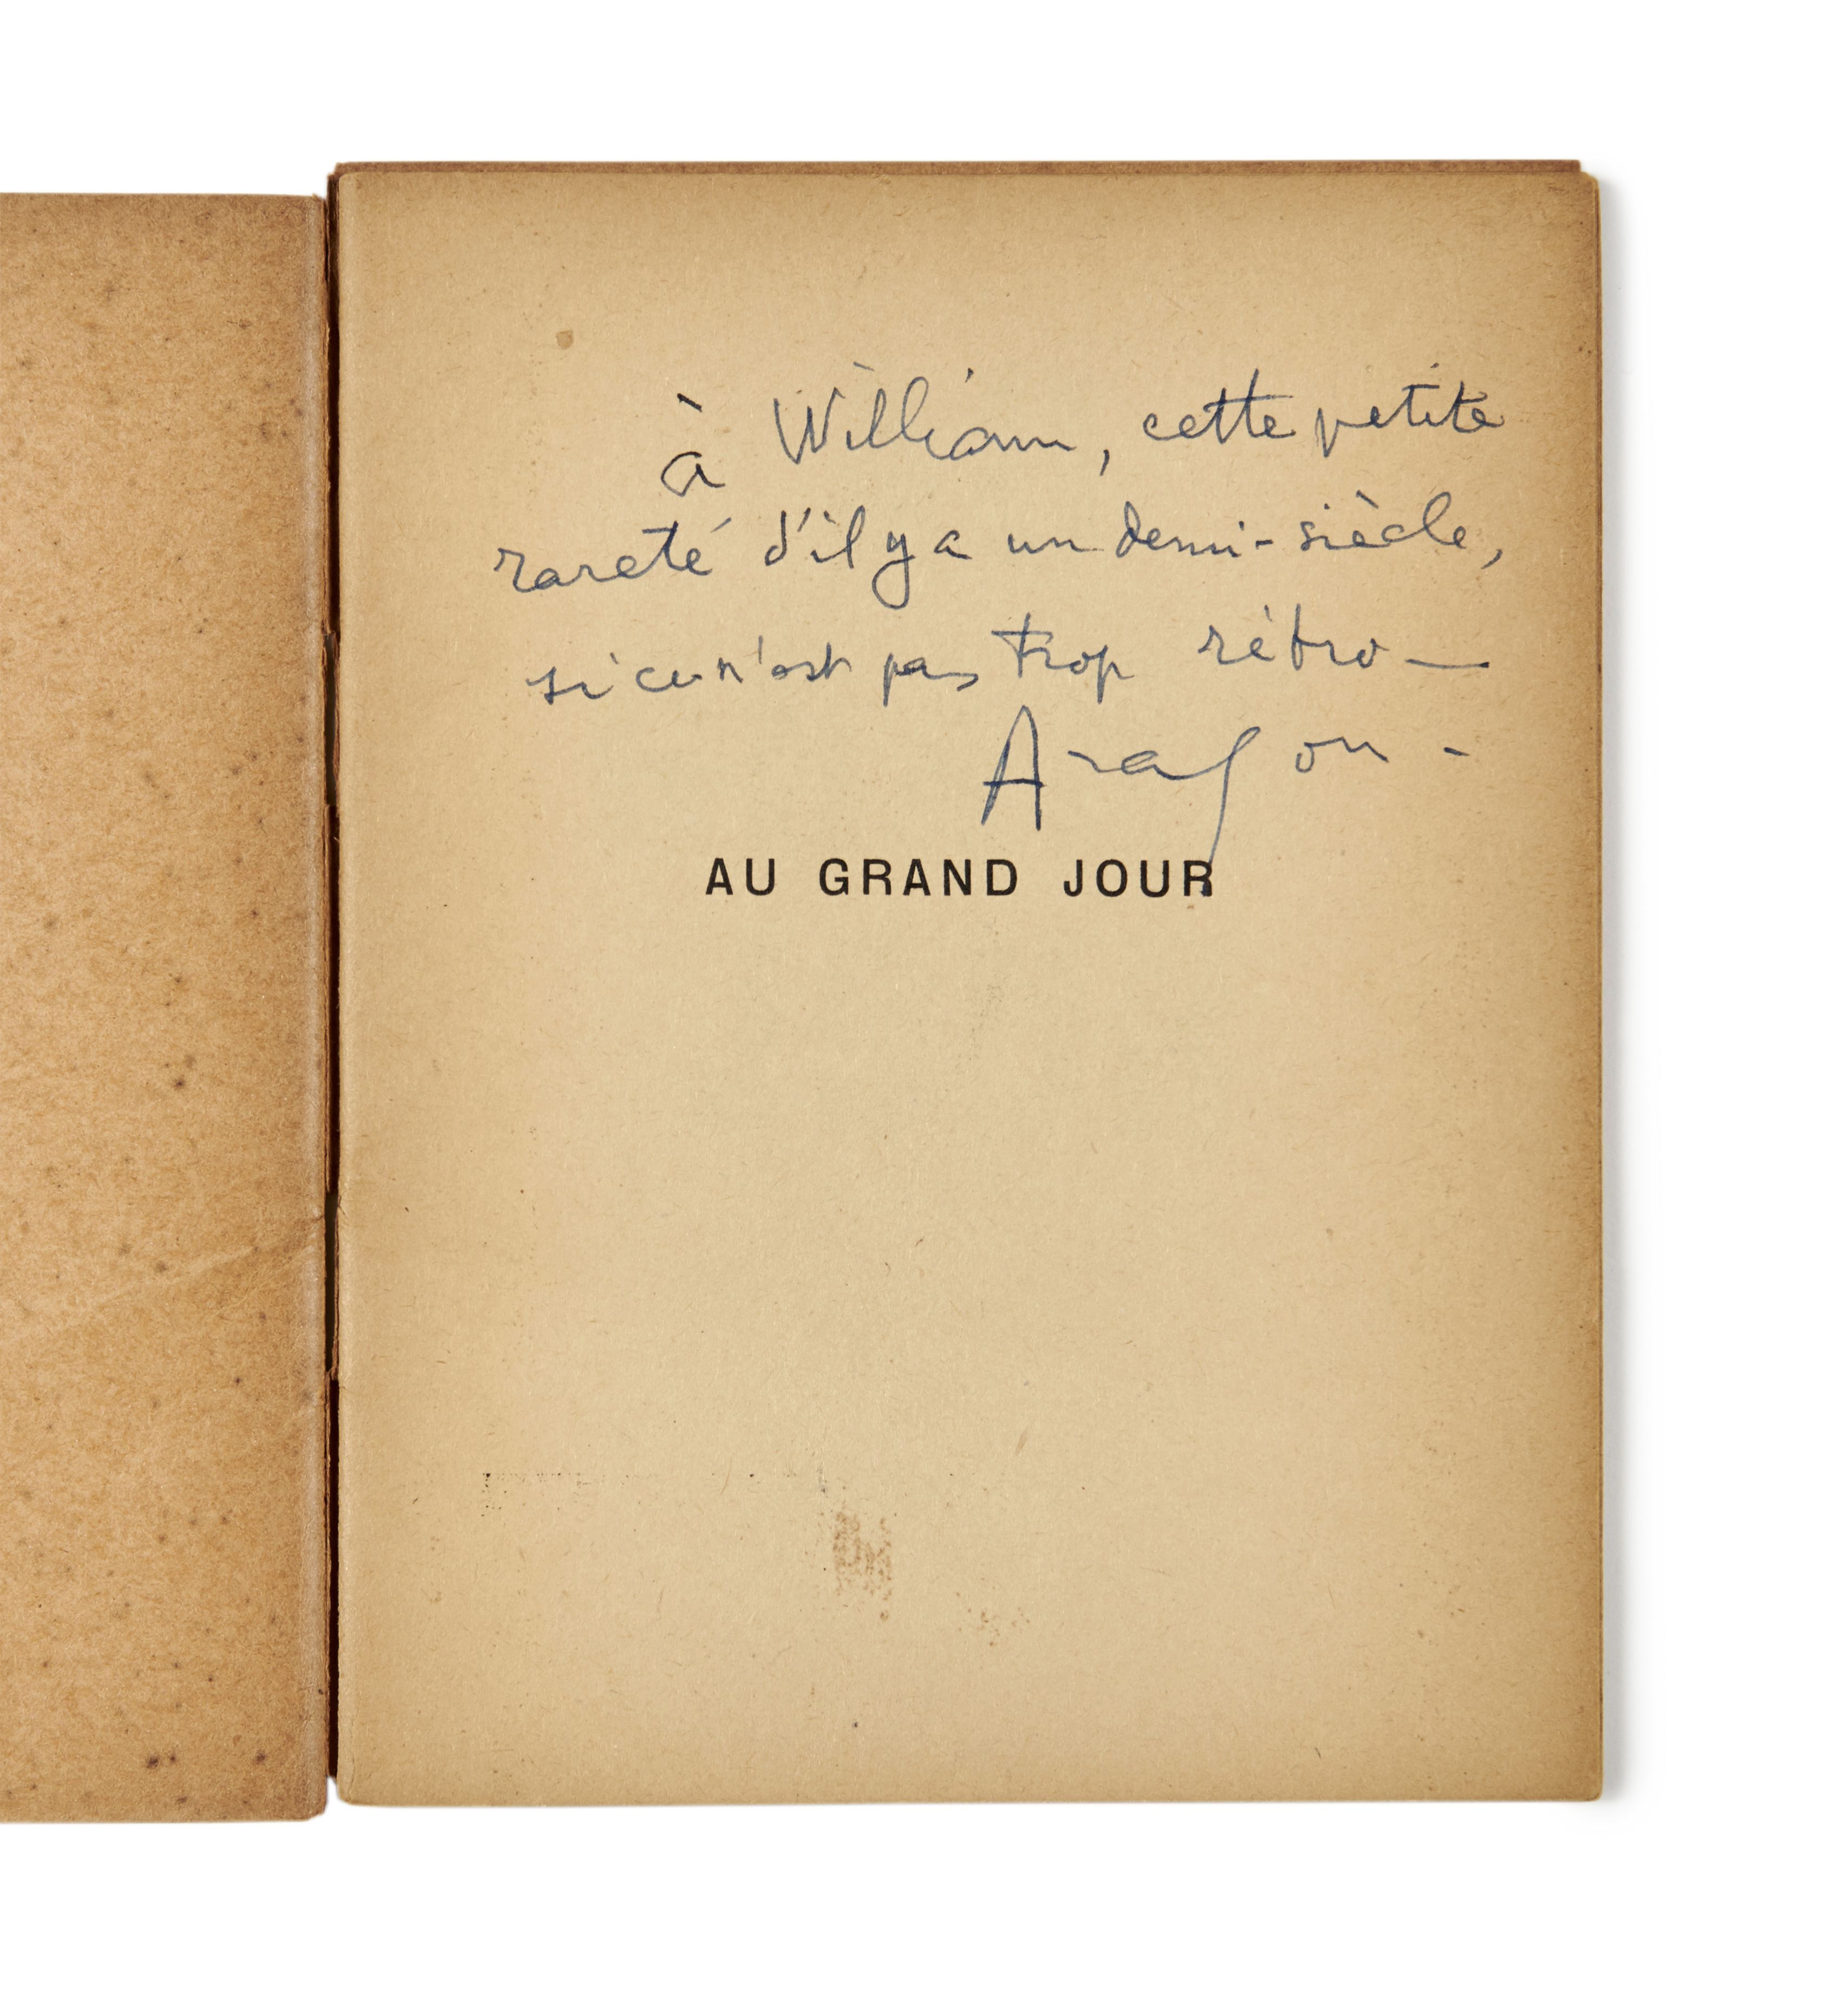 à William, cette petite
rareté d'il y a un demi-siècle,
si ce n'est pas trop rétro —
Aragon -
AU GRAND JOUR